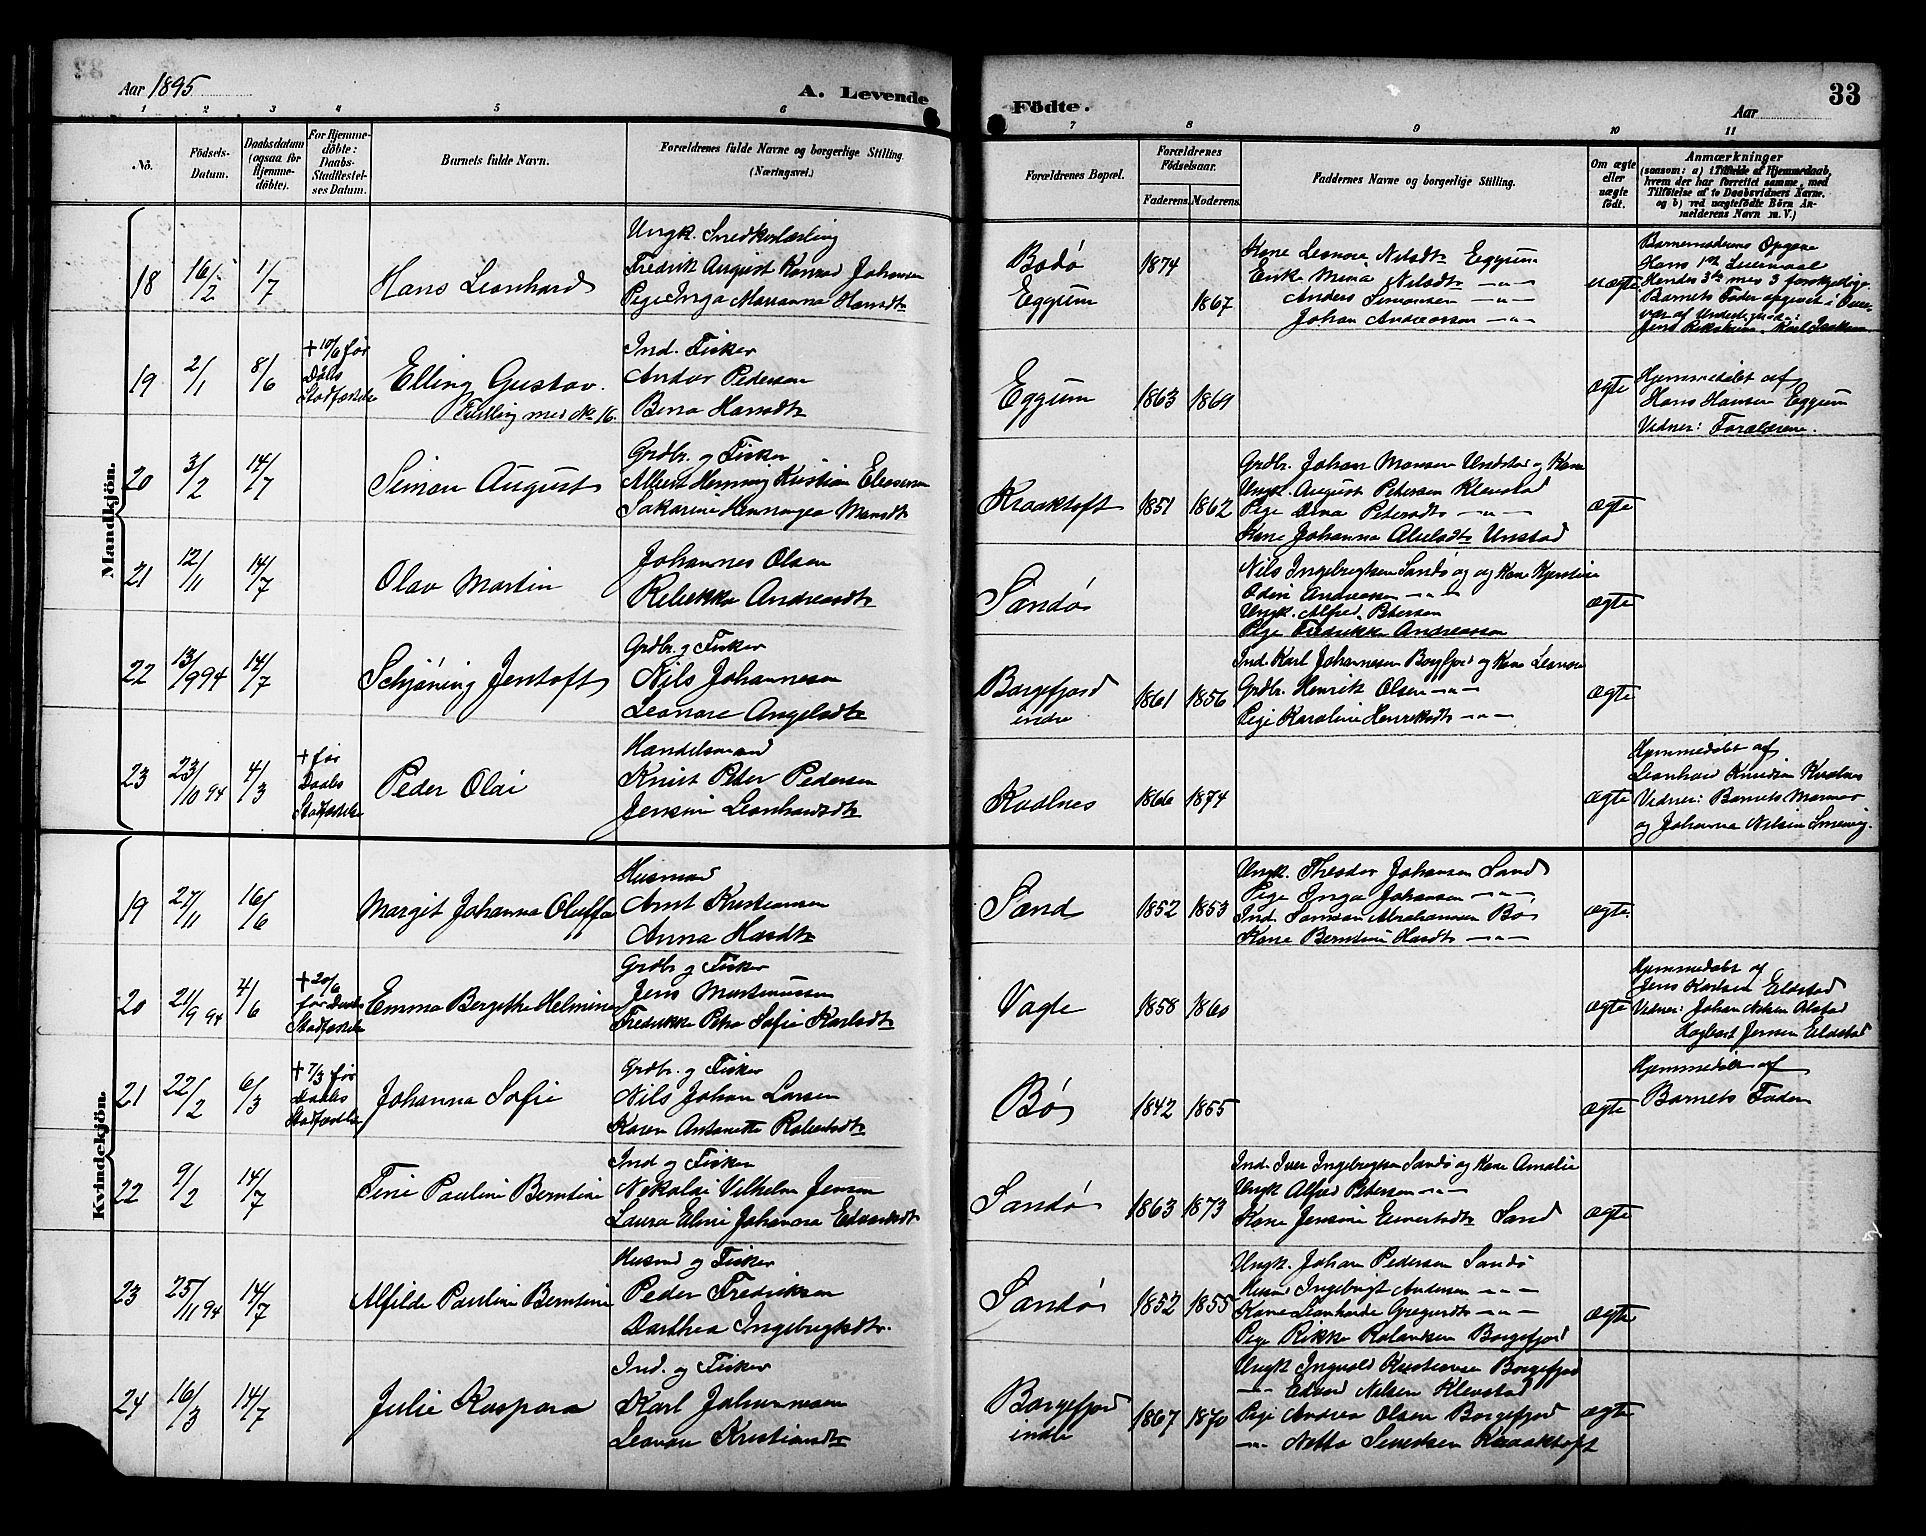 Aar 1895
A. Levende
Födte.
Aar
33
1 2 3 4 5 6 7 8 9 10 11
No.
Födsels-
Datum.
Daabsdatum
(ogsaa for
Hjemme-
döbte).
For Hjemme-
döbte:
Daabs-
Stadfæstel-
ses Datum.
Barnets fulde Navn.
Forældrenes fulde Navne og borgerlige Stilling.
(Næringsvei.)
Forældrenes Bopæl.
Forældrenes
Födselsaar.
Faderens. Moderens.
Faddernes Navne og borgerlige Stilling.
Om ægte
eller
uægte
födt.
Anmærkninger
(saasom: a) i Tilfælde af Hjemmedaab,
hvem der har forrettet samme, med
Tilföielse af to Daabsvidners Navne.
og b) ved uægtefödte Börn An-
melderens Navn m. V.)
Mandkjön.
18 16/2 1/7 Hans Leonhard
Ungk. Snedkerlærling
Fredrik August Konrad Johansen
Pige Inga Marianna Hansdtr
Bodø
Eggum
1874
1867
Kone Leonore Nilsdtr Eggum
Enke Mina Nilsdtr -"-
Anders Simonsen -"-
Johan Andreassen -"-
uægte
Barnemoderens Opgave
Hans 1ste Leiermaal
Hendes 3de med 3 forskjellige
19 2/1 8/6
+ 10/6 før
Daabs
Stadfæstelse
Elling Gustav.
Tvilling med No 16.
Ind. Fisker
Andor Pedersen
Berra Hansdtr
Eggum 1863 1869 ægte
Hjemmedøbt af
Hans Hansen Eggum
Vidner: Forældrene.
20 3/2 14/7 Simon August
Grdbr. og Fisker
Albert Henning Kristian Eliesersen
Sakarine Henningea Monsdtr
Kraaktoft 1851 1862
Grdbr. Johan Monsen Undstad og Kone
Ungk. August Petersen Klevstad
Pige Petersdtr -"-
Kone Johanna Abelsdtr Unstad
ægte
21 12/11 14/7 Olav Martin
Johannes Olsen
Rebekka Andreasdtr
Sandø
Nils Ingebrigtsen Sandø og Kone Kjerstine
Odin Andreassen -"-
Ungk. Alfred Petersen
Pige Fredrikke Andreassen
ægte
22 13/9 94 14/7 Schjøning Jentoft
Grdbr. og Fisker
Nils Johannesen
Leonore Angelsdtr
Borgefjord
indre
1861 1856
Ind. Karl Johannesen Borgfjord og Kone Leonore
Grdbr. Henrik Olsen -"-
Pige Karoline Henriksdtr -"-
ægte
23 23/10 94 4/3
+ før
Daabs
Stadfæstelse
Peder Olai
Handelsmand
Knut Peter Pedersen
Jensine Leonhardsdtr
Kvalnes 1866 1874 ægte
Hjemmedøbt af
Leonhard Knudsen Kvalnes
Vidner: Barnets Mormor
og Johanna Nilsen
Kvindekjön.
19 27/11 16/6 Margit Johanna Oluffa
Husmand
Arnt Kristiansen
Anna Hansdtr
Sand 1852 1853
Ungk. Theodor Johansen Sand
Pige Inga Johansen -"-
Ind. Abrahamsen Bø
Kone Berntine Hansdtr -"-
ægte.
20 21/9 94 4/6
+ 20/6
før Daabs
Stadfæstelse
Emma Bergithe Helmine
Grdbr og Fisker
Jens Martinussen
Fredrikke Petra Sofie Karlsdtr
Vagte 1858 1860 ægte
Hjemmedøbt af
Jens Karlsen Eldstad
Vidner: Johan Nilsen Alstad
Hagbart Jensen Eldstad
21 22/2 6/3
+ 7/3 før
Daabs
Stadfæstelse
Johanna Sofie
Grdbr. og Fisker
Nils Johan Larsen
Karen Antonette Robertsdtr
Bø 1842 1855 ægte
Hjemmedøbt af
Barnets Fader
22 9/2 14/7 Tine Pauline Berntine
Ind og Fisker
Nikolai Vilhelm Jensen
Laura Eline Johanna Edvardsdtr
Sandø 1863 1873
Ind. Iver Ingebrigtsen Sandø og Kone Amalie
Ungk Alfred Petersen -"-
Kone Jensine Sand
ægte
23 25/11 94 14/7 Alfilde Pauline Berntine
Husmd og Fisker
Peder Fredriksen
Dorthea Ingebrigtsdtr.
Sandø 1852 1855
Ungk. Johan Pedersen Sandø
Husmd Ingebrigt Andersen -"-
Kone Leonharde Gregersdtr -"-
Pige Rikke Rolandsen Borgefjord
ægte
24 16/3 14/7 Julie Kaspara
Ind. og Fisker
Karl Johannesen
Leonore Kristiansdtr
Borgefjord
indre
1867 1870
Ungk Ingvald Kristiansen Borgefjord
-"- Edvard Nilsen Klevstad
Pige Andrea Olsen Borgefjord
-"- Netta Kraaktoft
ægte